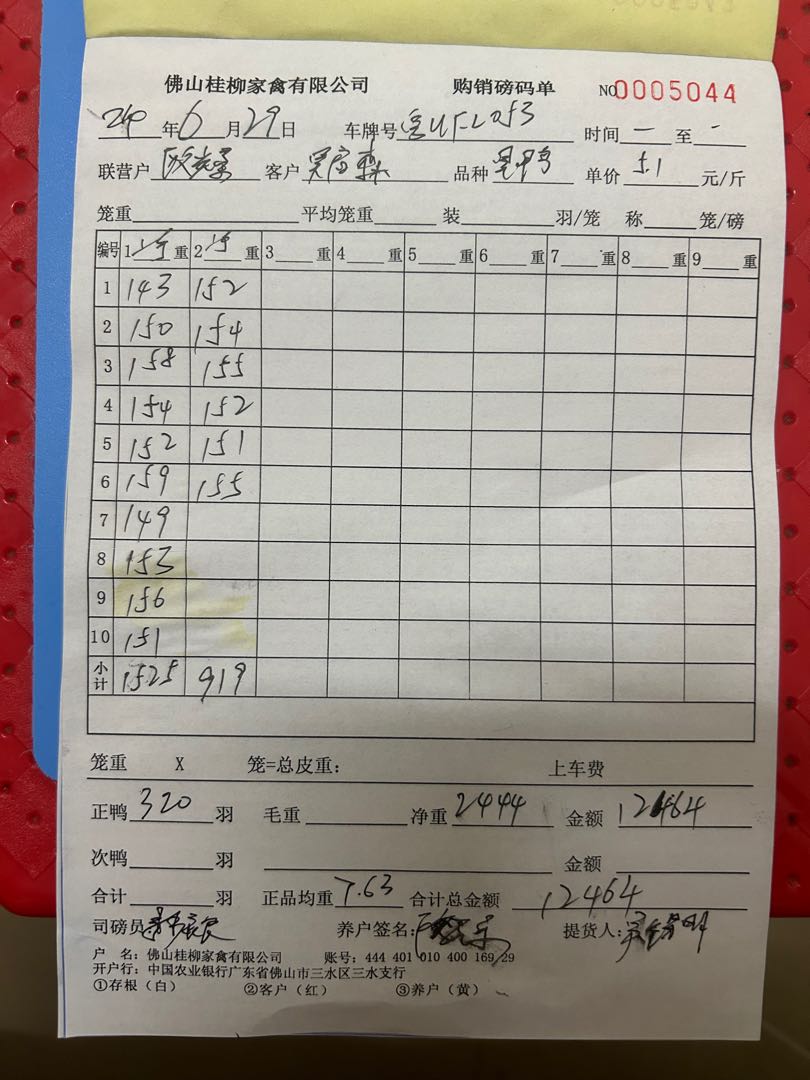 佛山桂柳家禽有限公司 购销磅码单 NO0005044
年6月29日 车牌号 时间 一 至 -
联营户 客户 品种 单价 5.1 元/斤
笼重 平均笼重 装 羽/笼 称 笼/磅
编号 1 重 2 重 3 重 4 重 5 重 6 重 7 重 8 重 9 重
1 143 152
2 150 154
3 158 155
4 154 152
5 152 151
6 159 155
7 149
8 153
9 156
10 151
小计 1525 919
笼重 X 笼=总皮重: 上车费
正鸭 320 羽 毛重 净重 2444 金额 12464
次鸭 羽 金额
合计 羽 正品均重 7.63 合计总金额 12464
司磅员 养户签名: 提货人:
户 名: 佛山桂柳家禽有限公司 账号: 444 401 010 400 169 29
开户行: 中国农业银行广东省佛山市三水区三水支行
①存根(白) ②客户(红) ③养户(黄)